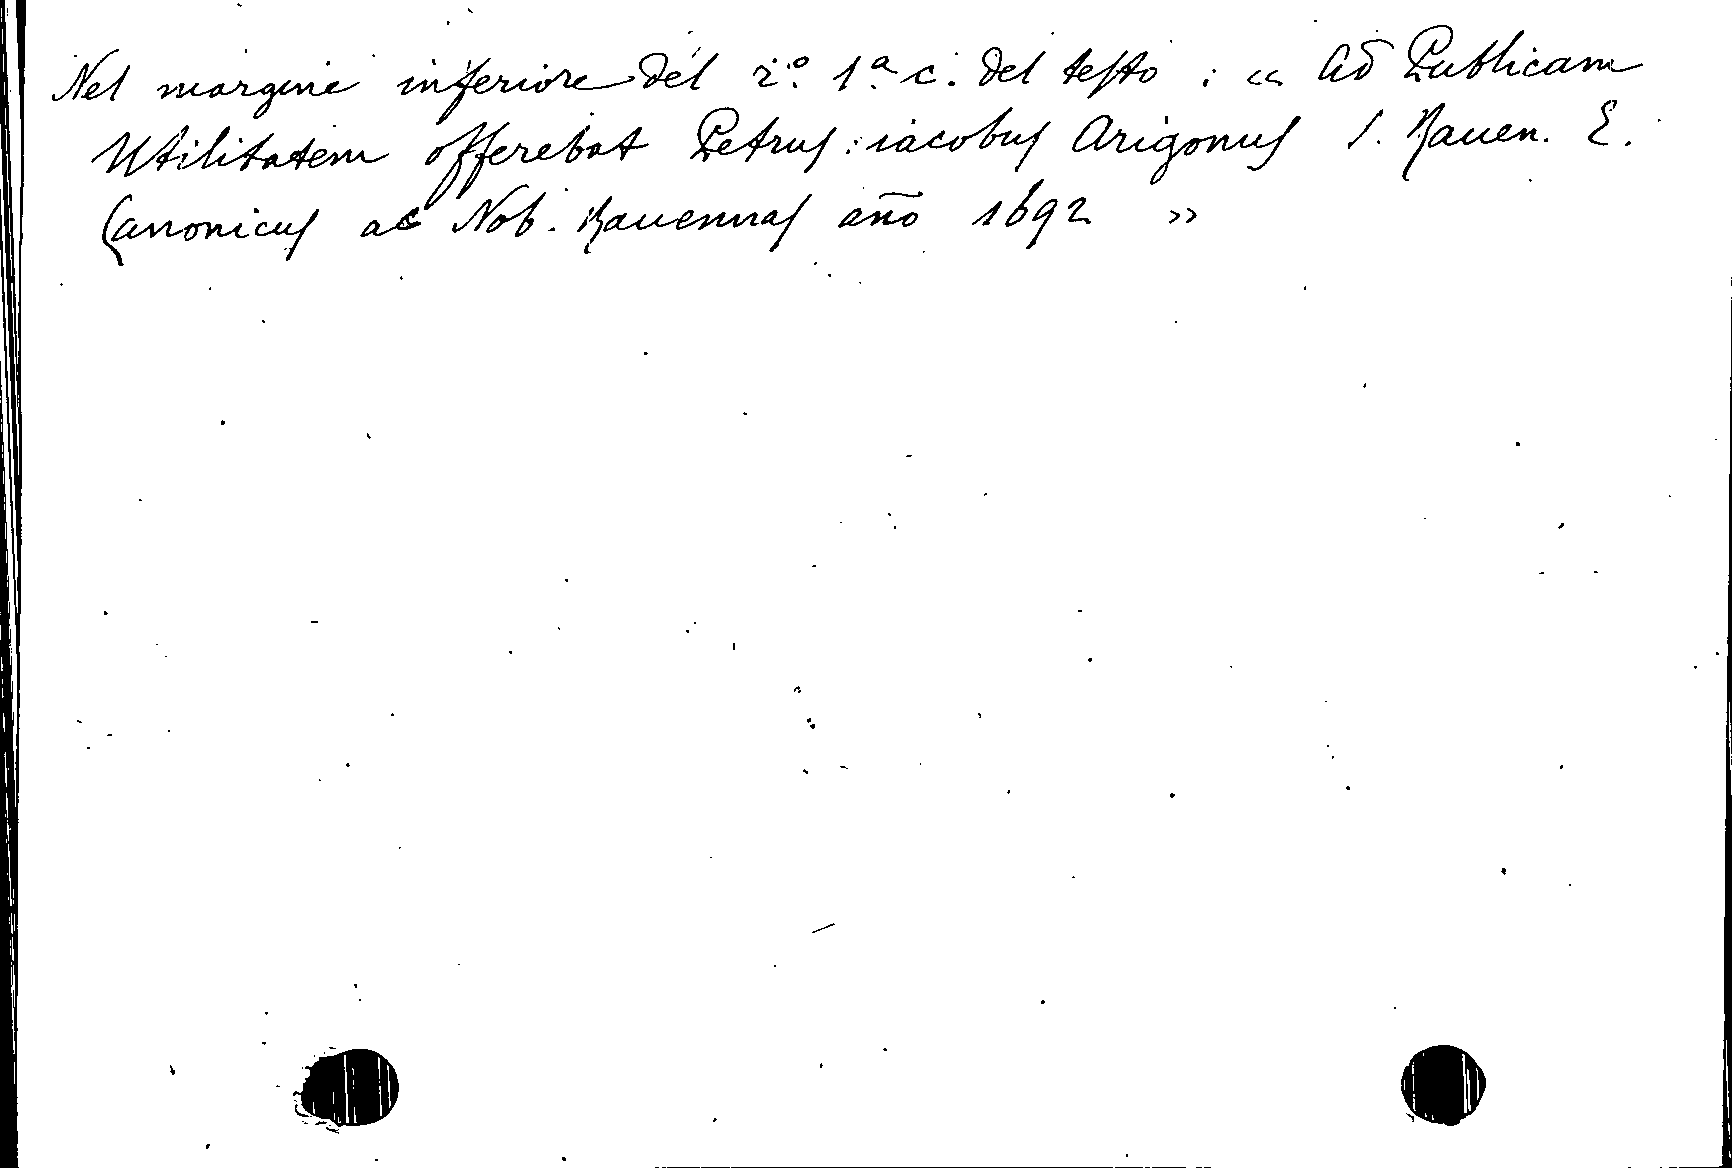 Nel margine inferiore del r.º 1.ª c. del testo : « Ad Publicam
Utilitatem offerebat Petrus : iacobus Arigonus S. Rauen. E.
Canonicus ac Nob. Rauennas año 1692 »